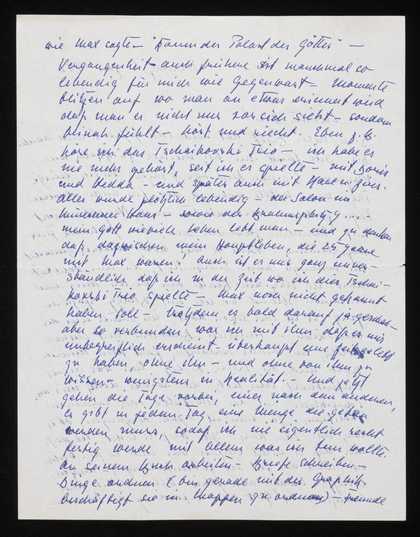 wie Max sagte – "Kammder Palast der Götter" –
Vergangenheit – auch frühere ist manchmal so
lebendig für mich wie Gegenwart – Momente
blitzen auf wo man an etwas erinnert wird
dass man es nicht nur vor sich sieht – sondern
beinah fühlt – hört und riecht. Eben z.b.
höre ich das Tschaikowski Trio – ich habe es
nie mehr gehört, seit ich es spielte – mit Doris
und Hedda – und später auch mit
alles wurde plötzlich lebendig – der Salon im
Haus – sowie der
mein Gott wieviele Leben lebt man – und zu denken
dass dazwischen mein Hauptleben, die 25 Jahre
mit Max waren. Auch ist es mir ganz unver-
ständlich dass ich in der Zeit wo ich dies Tschai-
kowski Trio spielte – Max noch nicht gekannt
haben soll – trotzdem es bald darauf
aber so verbunden war ich mit ihm, dass es mir
unbegreiflich erscheint überhaupt je gelebt
zu haben, ohne ihn – und ohne von ihm zu
wissen – wenigstens in Realität. – Und jetzt
gehen die Tage vorbei, einer nach dem anderen,
es gibt in jedem Tag eine Menge die getan
werden muss, sodass ich nie eigentlich recht
fertig werde mit allem was ich tun wollte
an seinem Buch arbeiten – Briefe schreiben –
Dinge ordnen (bin gerade mit der Graphik
beschäftigt sie in Mappen zu ordnen) – Freunde